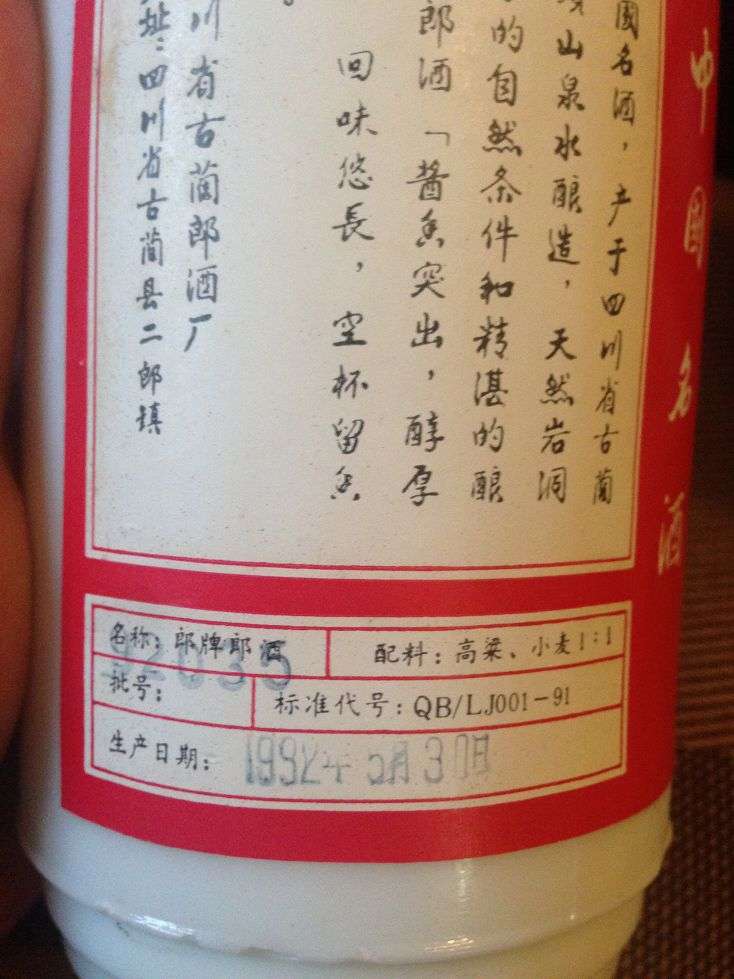 中国名酒
國名酒，产于四川省古蔺
山泉水酿造，天然岩洞
的自然条件和精湛的酿
郎酒「酱香突出，醇厚
回味悠長，空杯留香
川省古蔺郎酒厂
址：四川省古蔺县二郎镇
名称：郎牌郎酒
配料：高粱、小麦1:1
批号：
标准代号：QB/LJ001-91
生产日期：